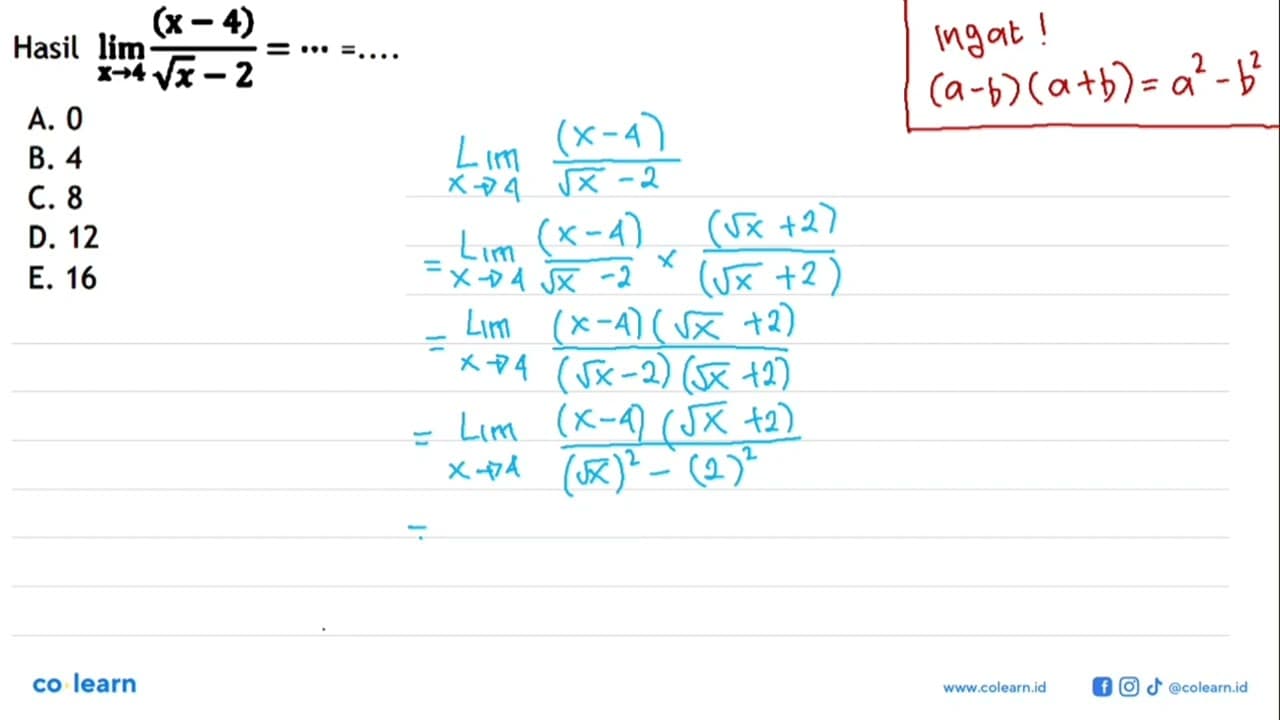 Hasil lim x→4 (x − 4)/(√x − 2) = ··· =....
A. 0
B. 4
C. 8
D. 12
E. 16
Ingat !
(a-b)(a+b) = a² - b²
Lim x→4 (x-4)/(√x -2)
= Lim x→4 (x-4)/(√x -2) × (√x +2)/(√x +2)
= Lim x→4 (x-4)(√x +2)/(√x-2)(√x+2)
= Lim x→4 (x-4)(√x +2)/(√x)² - (2)²
=
co learn
www.colearn.id
@colearn.id